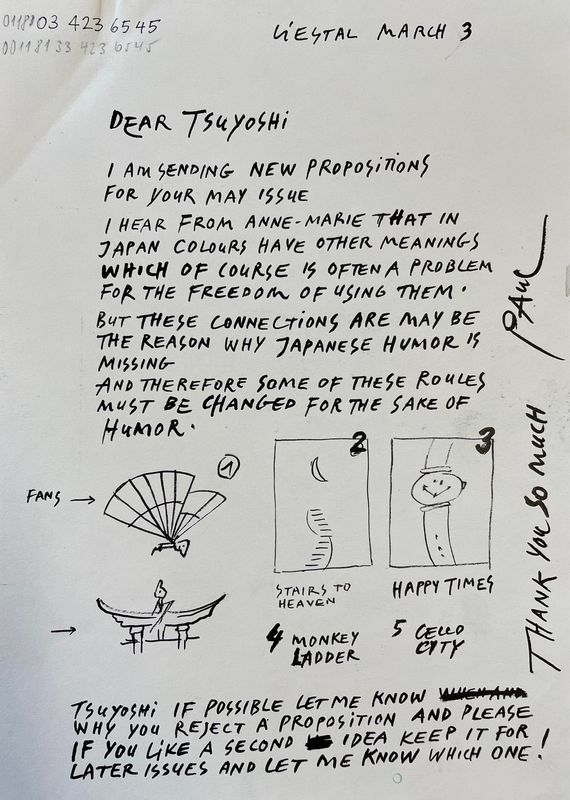 03 423 6545
LIESTAL MARCH 3
DEAR TSUYOSHI
I AM SENDING NEW PROPOSITIONS
FOR YOUR MAY ISSUE
I HEAR FROM ANNE-MARIE THAT IN
JAPAN COLOURS HAVE OTHER MEANINGS
WHICH OF COURSE IS OFTEN A PROBLEM
FOR THE FREEDOM OF USING THEM.
BUT THESE CONNECTIONS ARE MAY BE
THE REASON WHY JAPANESE HUMOR IS
MISSING
AND THEREFORE SOME OF THESE ROULES
MUST BE CHANGED FOR THE SAKE OF
HUMOR.
FANS →
1
2
3
STAIRS TO
HEAVEN
HAPPY TIMES
→
4 MONKEY
LADDER
5 CELLO
CITY
TSUYOSHI IF POSSIBLE LET ME KNOW
WHY YOU REJECT A PROPOSITION AND PLEASE
IF YOU LIKE A SECOND IDEA KEEP IT FOR
LATER ISSUES AND LET ME KNOW WHICH ONE!
THANK YOU SO MUCH PAUL